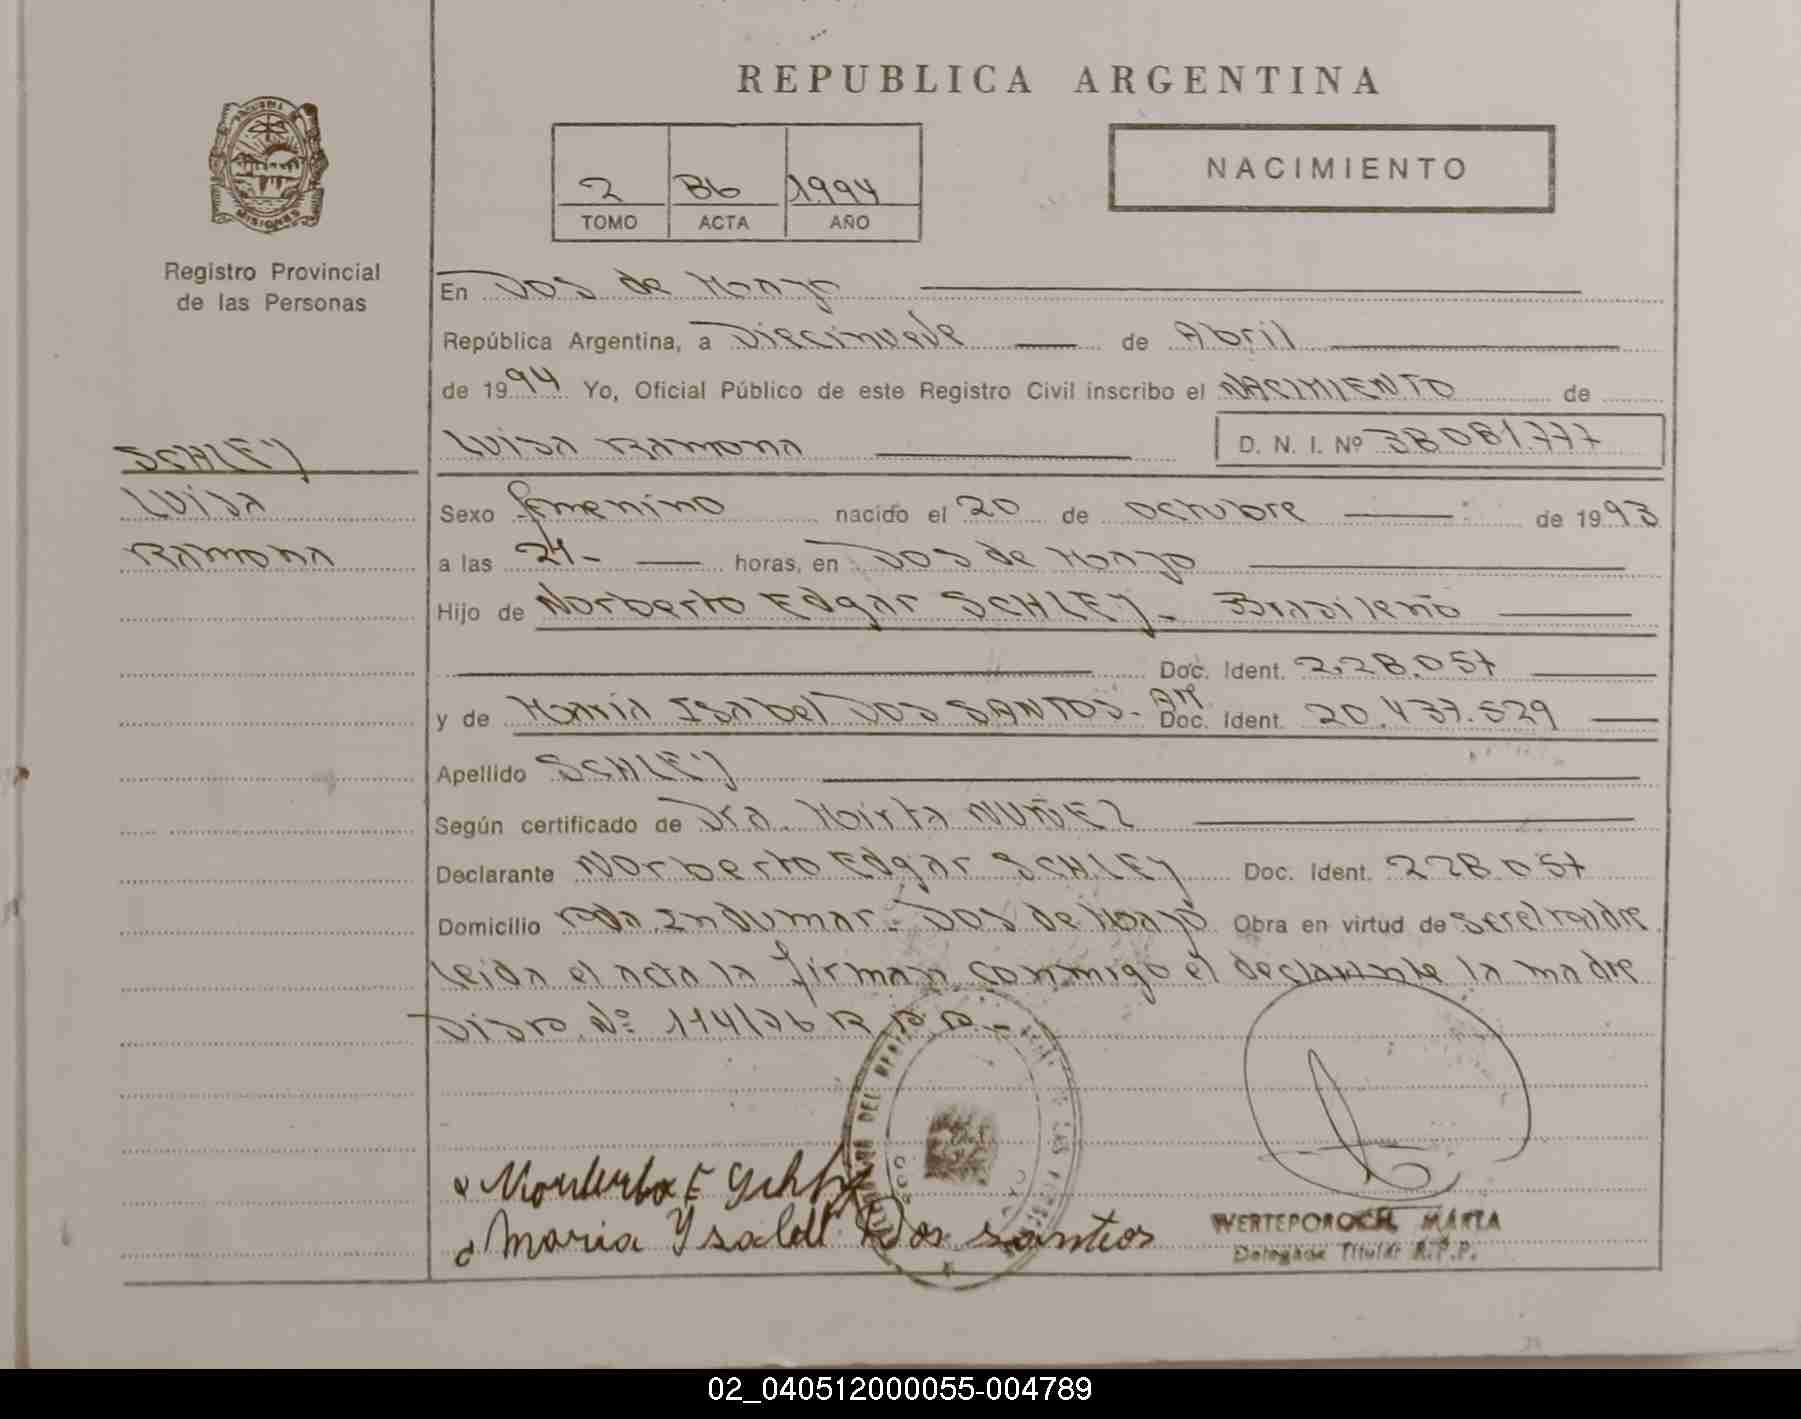 REPUBLICA ARGENTINA
NACIMIENTO
2 86 1994
TOMO ACTA AÑO
PROVINCIA
MISIONES
Registro Provincial
de las Personas
En Dos de Mayo
República Argentina, a Diecinueve de Abril
de 1994 Yo, Oficial Público de este Registro Civil inscribo el NACIMIENTO de
SCHLEY
LUISA RAMONA D. N. I. Nº 38081.777
LUISA
RAMONA
Sexo femenino nacido el 20 de octubre de 1993
a las 24- horas, en Dos de Mayo
Hijo de Norberto Edgar SCHLEY- Brasileño
Doc. Ident. 228.057
y de María Isabel DOS SANTOS- Ar. Doc. Ident. 20.437.529
Apellido SCHLEY
Según certificado de Dra. Mirta NUÑEZ
Declarante Norberto Edgar SCHLEY Doc. Ident. 228.057
Domicilio Indumar- Dos de Mayo Obra en virtud de ser el padre
Leida el acta la firman conmigo el declarante la madre
Dispo. Nº 114/76 R.P.P.-
Norberto E Schley
Maria Ysabel Dos santos
WERTEPOROCH MARTA
Delegada Titular R.P.P.
02_040512000055-004789